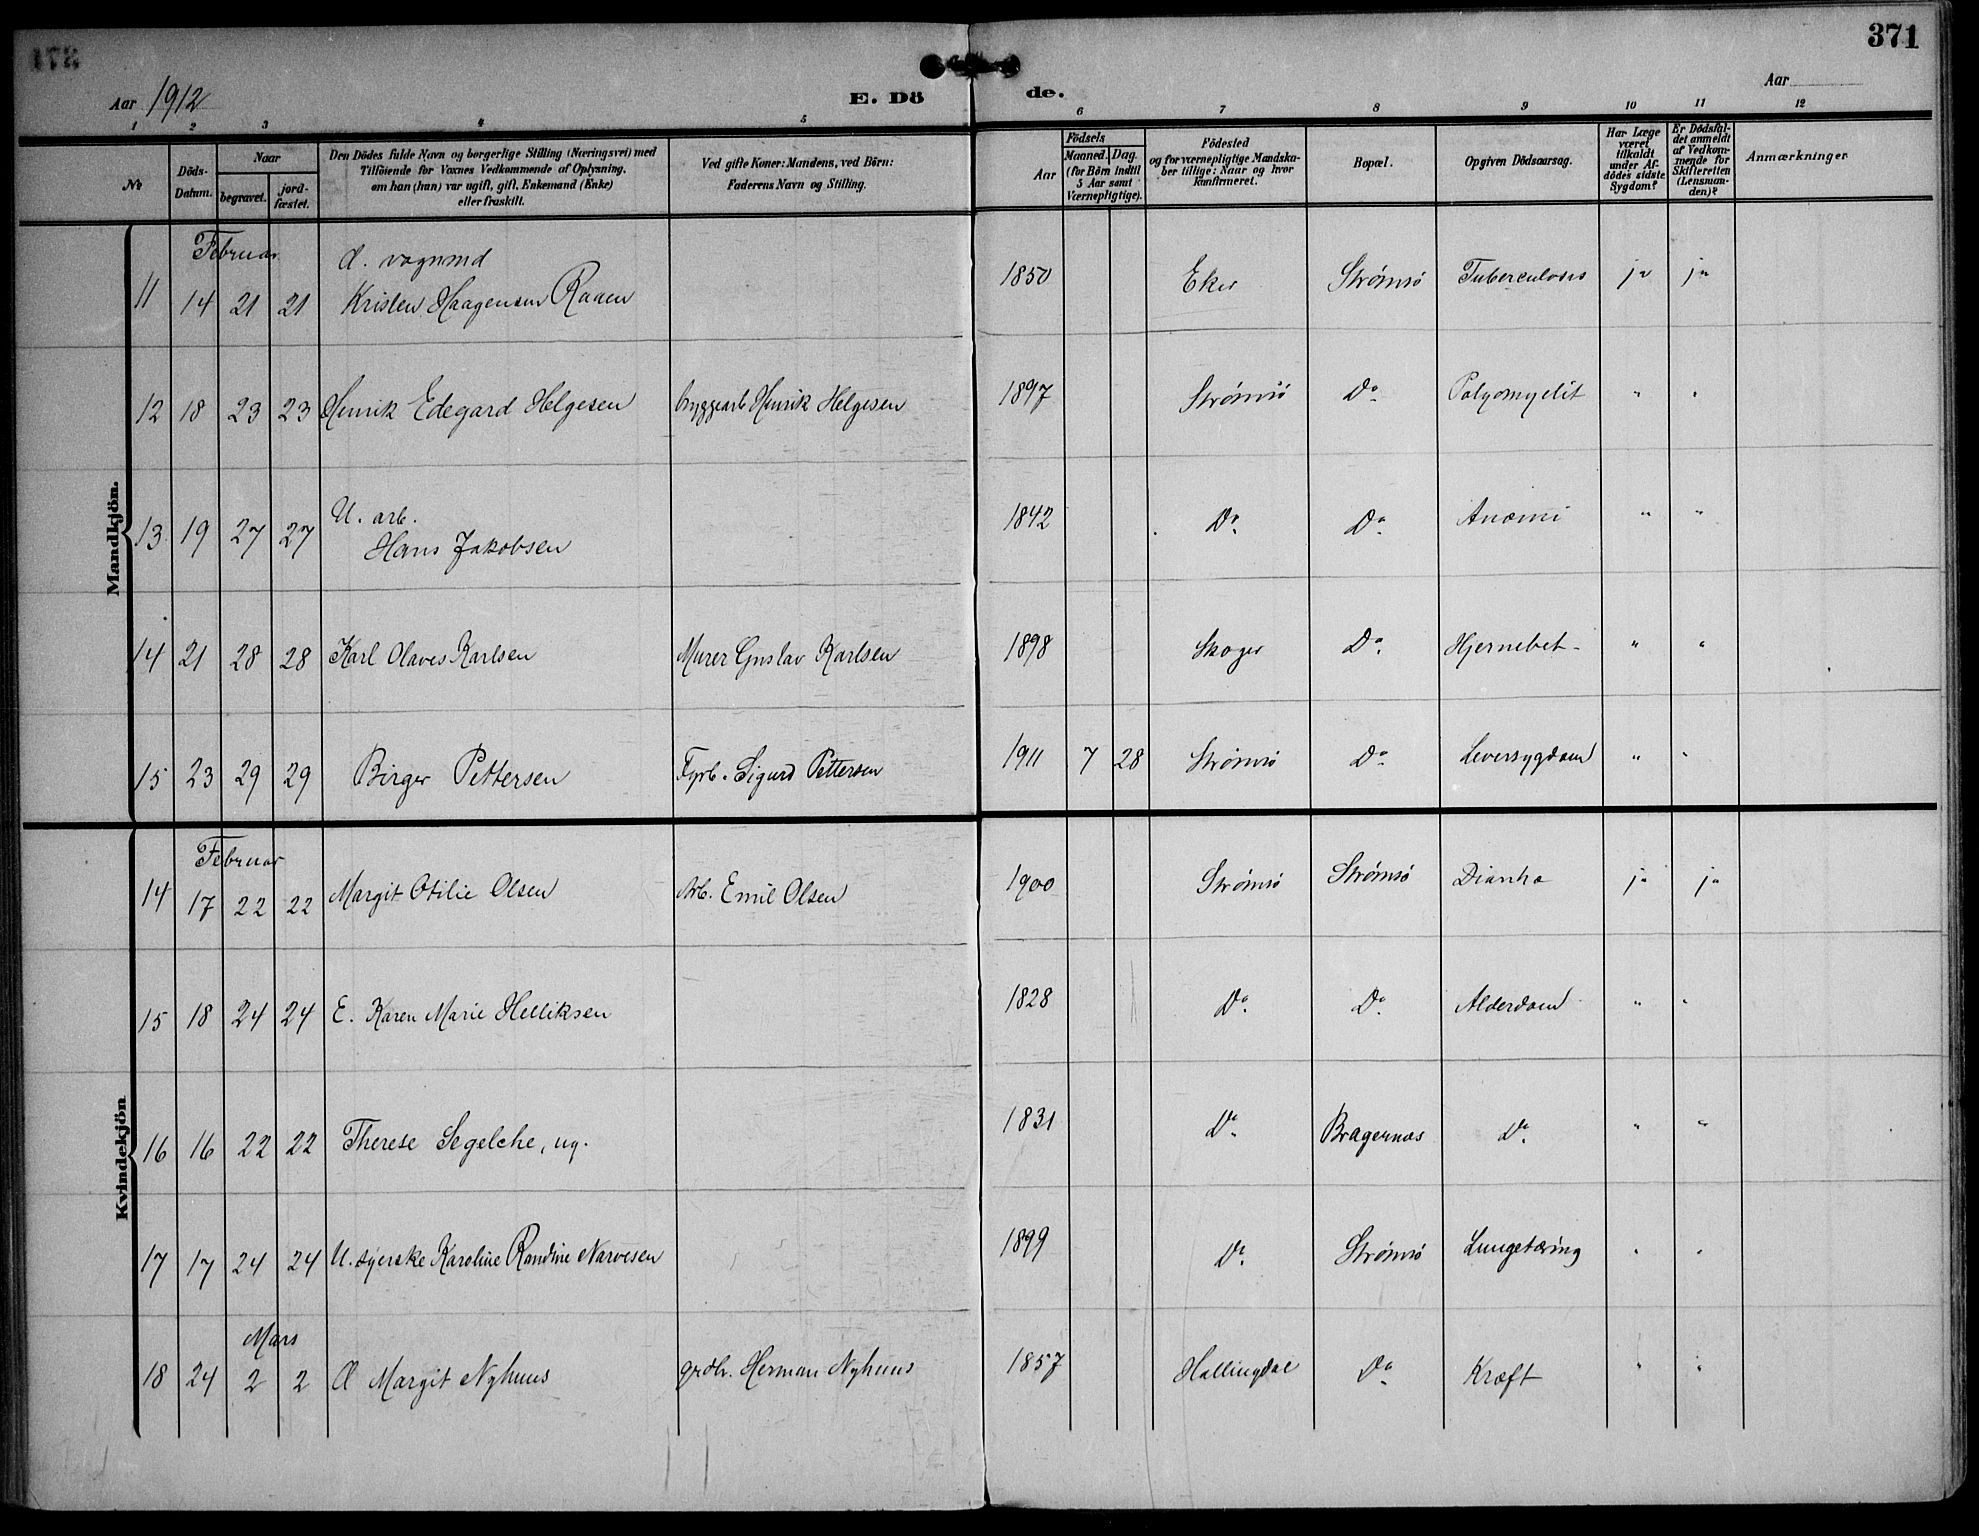 371
Aar 1912
E. Döde.
Aar
1 2 3 4 5 6 7 8 9 10 11 12
№
Döds-Datum.
Naar
begravet.
jord-fæstet.
Den Dödes fulde Navn og borgerlige Stilling (Næringsvei) med
Tilföiende for Voxnes Vedkommende af Oplysning.
om han (hun) var ugift, gift, Enkemand (Enke)
eller fraskilt.
Ved gifte Koner: Mandens, ved Börn:
Faderens Navn og Stilling.
Födsels
Aar
Maaned. Dag.
(for Börn indtil
5 Aar samt
Værnepligtige).
Födested
og for værnepligtige Mandska-
ber tillige: Naar og hvor
konfirmeret.
Bopæl.
Opgiven Dödsaarsag.
Har Læge
været
tilkaldt
under Af-
dödes sidste
Sygdom?
Er Dödsfal-
det anmeldt
af Vedkom-
mende for
Skifteretten
(Lensman-
den)?
Anmærkninger
Mandkjön.
Februar
11 14 21 21 d. vognmd Kristen Haagensen Raaen 1850 Eker Strømsø Tuberculosis ja ja
12 18 23 23 Henrik Edegard Helgesen bryggearb Henrik Helgesen 1897 Strømsø Do Polyomyelit " "
13 19 27 27 U. arb. Hans Jakobsen 1842 Do Do Anæmi " "
14 21 28 28 Karl Olaves Karlsen Murer Gustav Karlsen 1898 Skoger Do Hjernebet- " "
15 23 29 29 Birger Pettersen Fyrb. Sigurd Pettersen 1911 7 28 Strømsø Do Leversygdom " "
Kvindekjön
Februar
14 17 22 22 Margit Otilie Olsen Arb. Emil Olsen 1900 Strømsø Strømsø Diarrhe ja ja
15 18 24 24 E. Karen Marie Helliksen 1828 Do Do Alderdom " "
16 16 22 22 Therese Segelche, ug. 1831 Do Bragernæs Do " "
17 17 24 24 U. syerske Karoline Randine Narvesen 1899 Do Strømsø Lungetæring " "
Mars
18 24 2 2 Margit Nyhuus grdbr. Herman Nyhuus 1857 Hallingdal Do Kræft " "